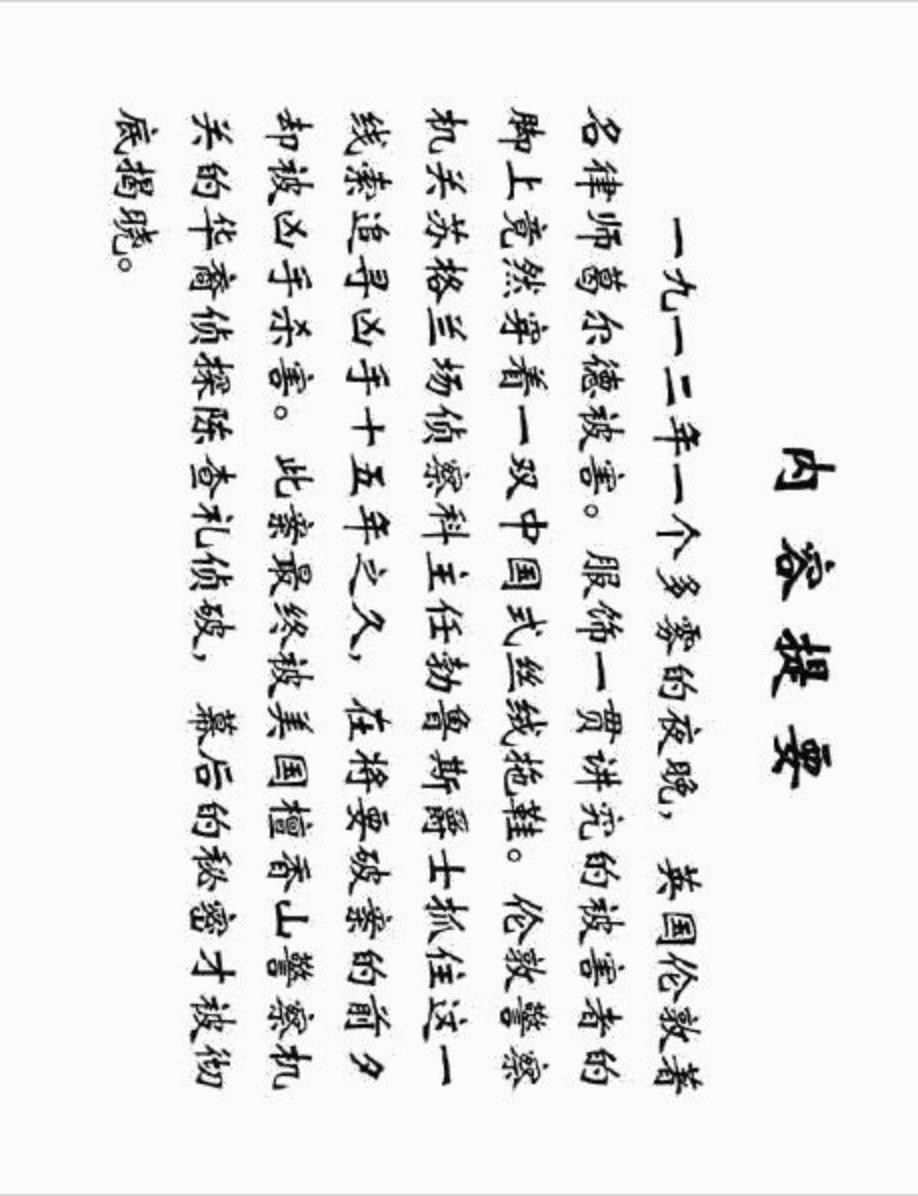 内容提要
一九一二年一个多雾的夜晚，英国伦敦著
名律师葛尔德被害。服饰一贯讲究的被害者的
脚上竟然穿着一双中国式丝绒拖鞋。伦敦警察
机关苏格兰场侦察科主任勃鲁斯爵士抓住这一
线索追寻凶手十五年之久，在将要破案的前夕
却被凶手杀害。此案最终被美国檀香山警察机
关的华裔侦探陈查礼侦破，幕后的秘密才被彻
底揭晓。